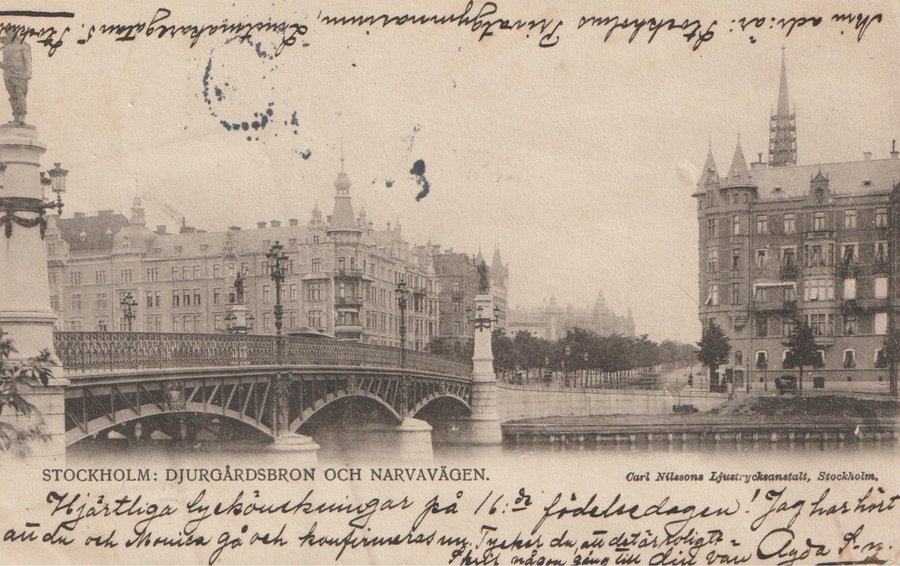 Min adr: är: Stockholms Privatgymnasium,
Lindtmakaregatan 5. Stockholm
STOCKHOLM: DJURGÅRDSBRON OCH NARVAVÄGEN.
Carl Nilssons Ljustrycksanstalt, Stockholm.
Hjärtliga lyckönskningar på 16:de födelsedagen! Jag har hört
att du och Monica gå och konfirmeras nu. Tycker du, att det är roligt?
Skrif någon gång till din vän Agda S-n.